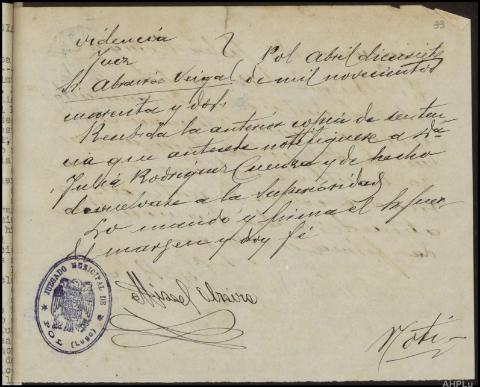 33
videncia
Juez
Sr. Abraira Veiga
Pol Abril diecisiete
de mil novecientos
cuarenta y dos.
Recibida la anterior copia de senten
cia que antecede notifiquese a
Julia Rodriguez Cuenca y de hecho
devuelvase a la Superioridad
Lo mando y firma el Sr Juez
al margen y doy fé
JUZGADO MUNICIPAL DE
POL (Lugo)
Misael Abraira
Noti-
AHPLu